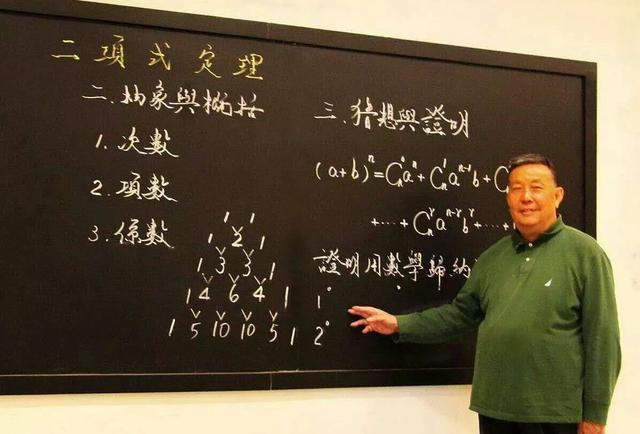 二項式定理
二.抽象與概括
1.次數
2.項數
3.係數
1 1
1 2 1
1 3 3 1
1 4 6 4 1
1 5 10 10 5 1
三.猜想與證明
(a+b)ⁿ=Cₙ⁰aⁿ+Cₙ¹aⁿ⁻¹b+C
+⋯+Cₙʳaⁿ⁻ʳbʳ+⋯+
證明用數學歸納
1°
2°